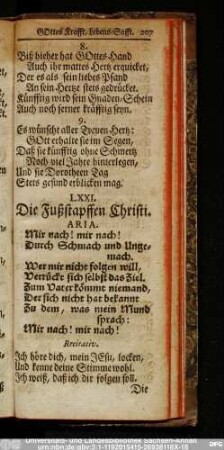 GOttes Krafft, Lebens-Safft. 207
8.
Biß hieher hat GOttes-Hand
Auch ihr mattes Hertz erquicket,
Der es als sein liebes Pfand
An sein Hertze stets gedrücket.
Künfftig wird sein Gnaden-Schein
Auch noch ferner kräfftig seyn.
9.
Es wünschet aller Treuen Hertz:
GOtt erhalte sie im Segen,
Daß sie künfftig ohne Schmertz
Noch viel Jahre hinterlegen,
Und sie Dorotheen Tag
Stets gesund erblicken mag.
LXXI.
Die Fußstapffen Christi.
ARIA.
Mir nach! mir nach!
Durch Schmach und Unge-
mach.
Wer mir nicht folgen will,
Verrückt sich selbst das Ziel.
Zum Vater kömmt niemand,
Der sich nicht hat bekannt
Zu dem, was mein Mund
sprach:
Mir nach! mir nach!
Recitativ.
Ich höre dich, mein JEsu, locken,
Und kenne deine Stimme wohl.
Ich weiß, daß ich dir folgen soll.
Die
Universitäts- und Landesbibliothek Sachsen-Anhalt
urn:nbn:de:gbv:3:1-1192015415-269381116X-18